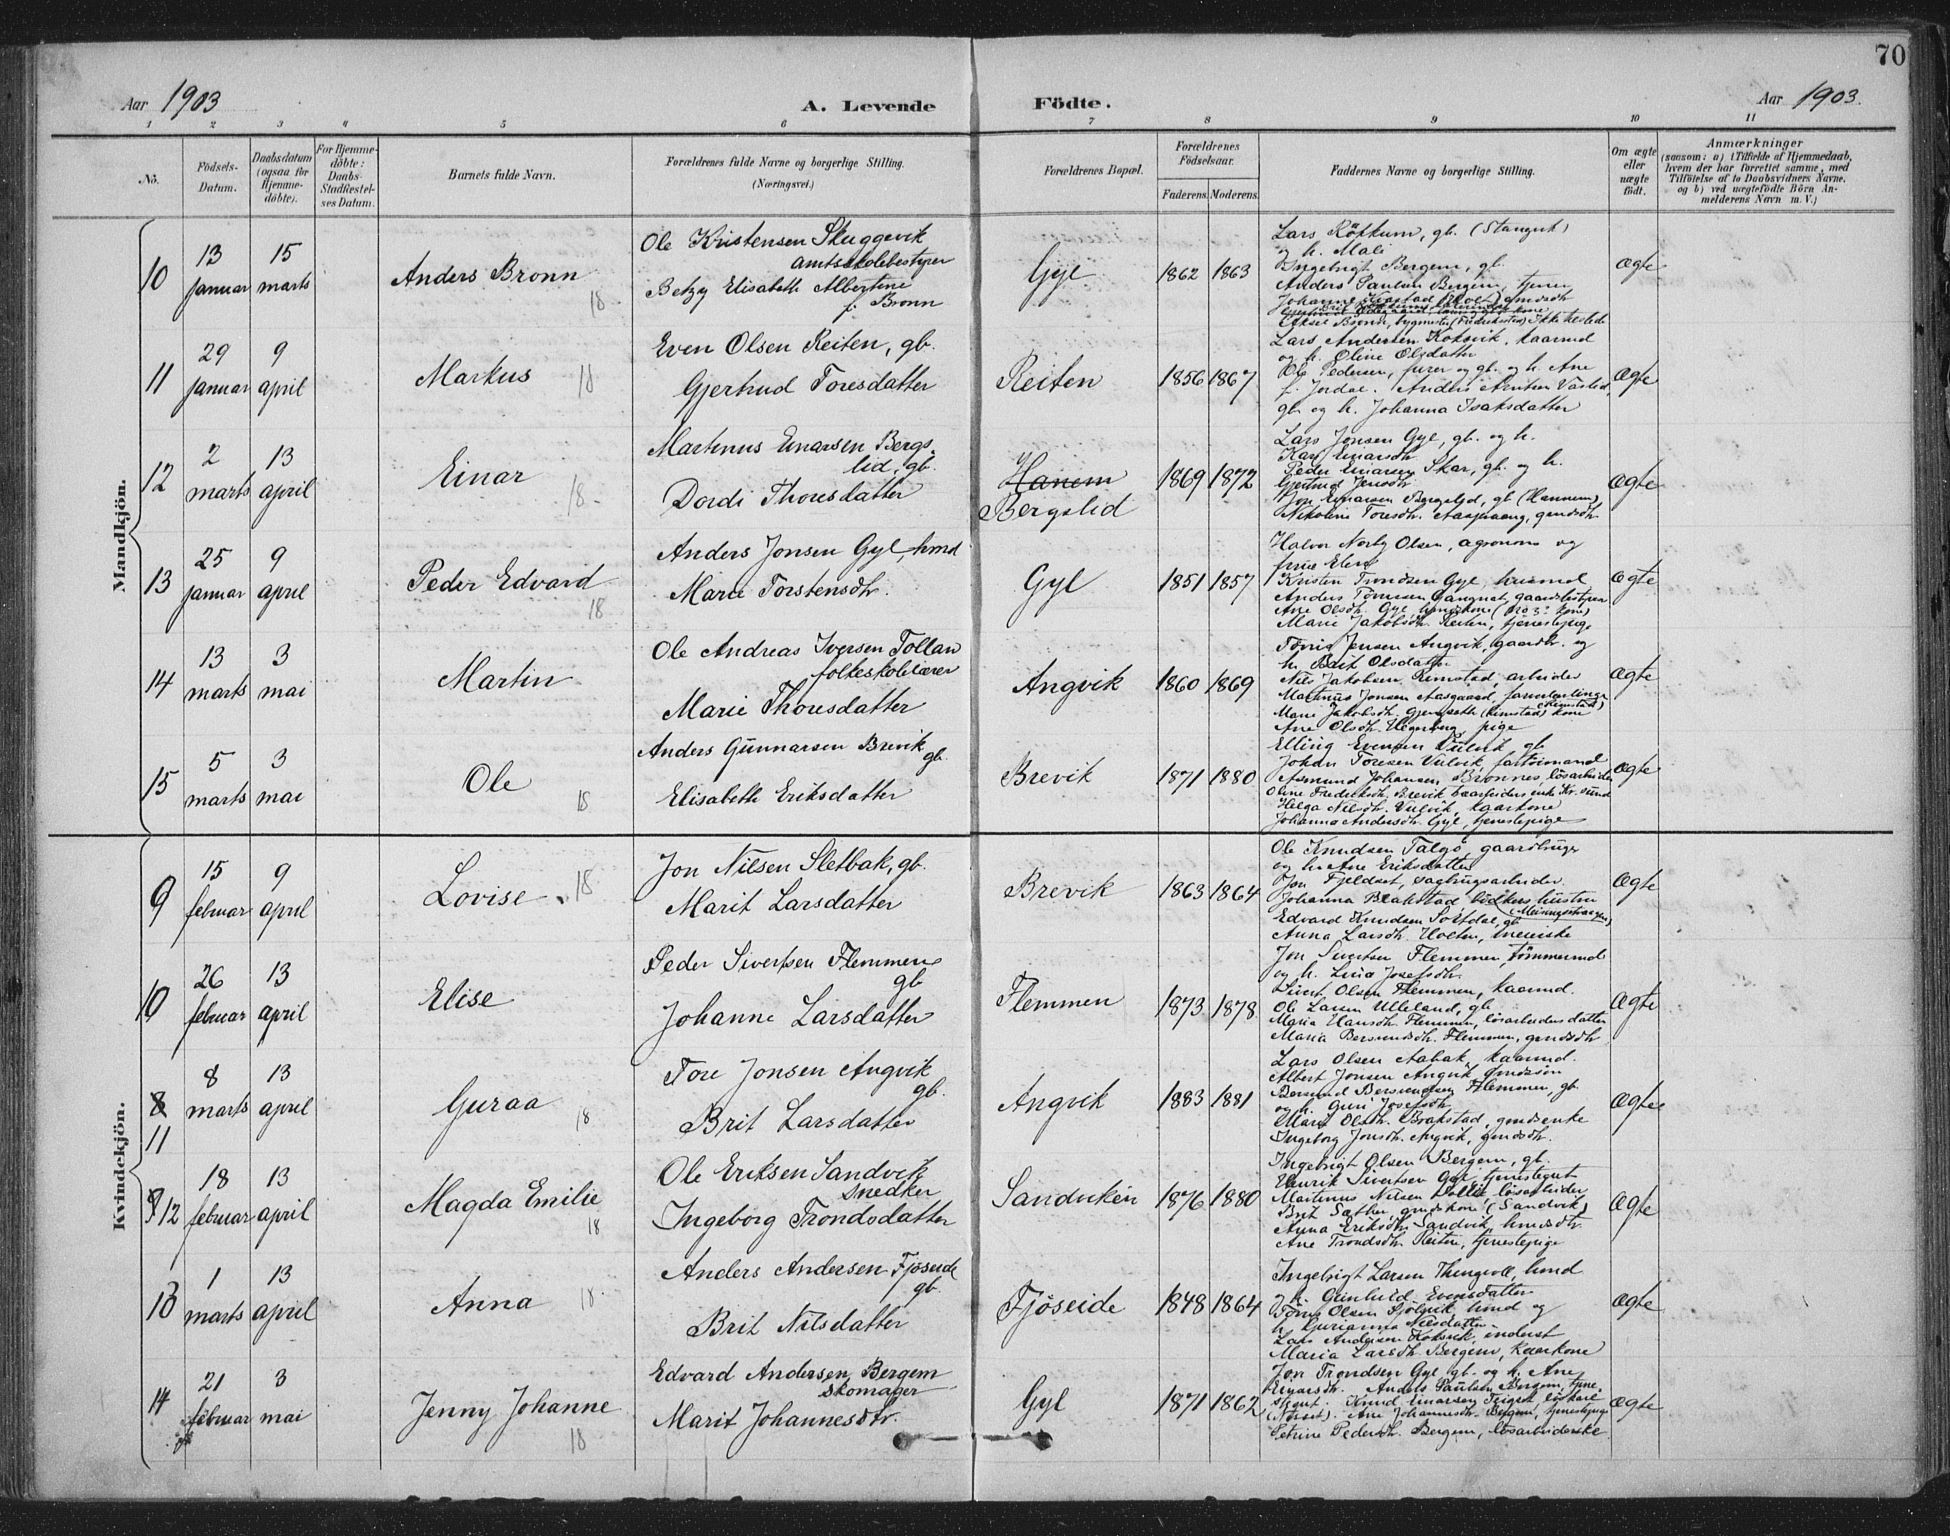 70
Aar 1903
A. Levende
Födte.
Aar 1903.
1 2 3 4 5 6 7 8 9 10 11
No.
Födsels-Datum.
Daabsdatum (ogsaa for Hjemme-döbte).
For Hjemme-döbte: Daabs-Stadfæstel-ses Datum.
Barnets fulde Navn.
Forældrenes fulde Navne og borgerlige Stilling.
(Næringsvei.)
Forældrenes Bopæl.
Forældrenes Födselsaar.
Faderens. Moderens.
Faddernes Navne og borgerlige Stilling.
Om ægte eller uægte födt.
Anmærkninger
(saasom: a) i Tilfælde af Hjemmedaab,
hvem der har forrettet samme, med
Tilföielse af to Daabsvidners Navne,
og b) ved uægtefödte Börn An-
melderens Navn m. V.)
Mandkjön.
10
13 januar
15 marts
Anders Bronn
18
Ole Kristensen Skuggevik
amtsskolebestyrer
Betzy Elisabeth Albertine
f. Bronn
Gyl
1862 1863
Lars Rökkum, gb. (Stangvik)
og h. Mali
Ingebrigt Bergem, gb.
Anders Paulsen Bergem, tjener
ægte
11
29 januar
9 april
Markus
18
Even Olsen Reiten, gb.
Gjertrud Toresdatter
Reiten
1856 1867
Lars Andersen Koksvik, kaarmd
og h. Oline Olsdatter
Ole Pedersen, furer og gb. og h. Ane
gb. og h. Johanna Isaksdatter
ægte
12
2 marts
13 april
Einar
18
Martinus Einarsen Bergs-
lid, gb.
Dordi Thoresdatter
Hanem
Bergslid
1869 1872
Lars Jonsen Gyl, gb. og h.
Kari Einarsdtr
Peder Einarsen Skar, gb. og h.
Gjertrud Jensdtr
Jon Einarsen Bergslid, gb (Hannem)
Nikoline Toresdtr. gmdsdtr
ægte
13
25 januar
9 april
Peder Edvard
18
Anders Jonsen Gyl, hmd
Marie Torstensdtr.
Gyl
1851 1857
Halvor Norby Olsen, agronom og
frue Elen
Kristen Trondsen Gyl, husmd
Anders Tömesen Gangnat, gaardbestyrer
Ane Olsdtr. Gyl, hmdkone
Marie Jakobsdtr. Reiten, tjenestepig.
ægte
14
13 marts
3 mai
Martin
Ole Andreas Iversen Tollan
folkeskolelærer
Marie Thoresdatter
Angvik
1860 1869
Jensen Angvik, gaardbr. og
h. Brit Olsdatter
Nils Jakobsen Rimstad, arbeider
Martinus Jonsen Aasgaard,
(Rimstad)
Marie Jakobsdtr. (Rimstad) kone
Ane Olsdtr. pige
ægte
15
5 marts
3 mai
Ole
18
Anders Gunnarsen Brevik
gb.
Elisabeth Eriksdatter
Brevik
1871 1880
Elling Evensen Vulvik, gb
Johan Toresen Vulvik, fattiemand
Asmund Johansen Bronnes, lösarbeider
Oline Fredriksdtr. Brevik Kr.sund
Helga Nilsdtr. Vulvik, kaarkone
Johanna Andersdtr. Gyl, tjenestepige
ægte
Kvindekjön.
9
15 februar
9 april
Lovise
18
Jon Nilsen Sletbak, gb.
Marit Larsdatter
Brevik
1863 1864
Ole Knudsen Talgö, gaardbruger
og h. Ane Eriksdatter
Jon Fjeldset, sagbrugsarbeider
Johanna Brakstad, bödkers hustru
Edvard Knudsen gb.
Anna Larsdtr. Holten,
ægte
10
26 februar
13 april
Elise
Peder Sivertsen Flemmen
gb
Johanne Larsdatter
Flemmen
1873 1878
Jon Sivertsen Flemmen, tömmermd
og h. Lina Josefsdtr.
Sivert Olsen Flemmen, kaarmd.
Ole Larsen Ulleland, gb.
Maria Hansdtr. Flemmen, lösarbeiders datter
Maria Bersvendsdtr. Flemmen, gmdsdtr
ægte
8
11
8 marts
13 april
Guraa
18
Tore Jonsen Angvik
gb.
Brit Larsdatter
Angvik
1883 1881
Lars Olsen Aabak, kaarmd.
Albert Jonsen Angvik gmdssön
Bersvend Bersvendsen Flemmen, gb.
og h. Guri Josefsdtr.
Marit Olsdtr. Brakstad, gmdsenke
Ingeborg Jonsdtr. Angvik, gmdsdtr.
ægte
9 12
18 februar
13 april
Magda Emilie
18
Ole Eriksen Sandvik
snedker
Ingeborg Trondsdatter
Sandviken
1876 1880
Ingebrigt Olsen Bergem, gb.
Henrik Sivertsen Gyl, tjenestegut
Martinus Nilsen lösarbeider
Brit Sæther, gmdskone (Sandvik)
Anna Eriksdtr. Sandvik, hmdsdtr.
Ane Trondsdtr. Reiten, tjenestepige
ægte
13
1 marts
13 april
Anna
18.
Anders Andersen Fjöseide
gb.
Brit Nilsdatter
Fjöseide
1848 1864
Ingebrigt Larsen Thingvoll, hmd
og h. Gunhild Evensdatter
Olsen Sjölsvik, hmd og
h. Gurianna Nilsdatter
Lars Andersen Koksvik, inderst
Maria Larsdtr. Bergem, kaarkone
ægte
14
21 februar
3 mai
Jenny Johanne
18
Edvard Andersen Bergem
skomager
Marit Johannesdtr.
Gyl
1871 1862
Jon Trondsen Gyl gb. og h. Ane
Einarsdtr. Anders Paulsen Bergem, tjene-
Ane Johannesdtr. Bergem, tjenestepige
Petrine Pedersdtr. Bergem, lösarbeiderske
ægte